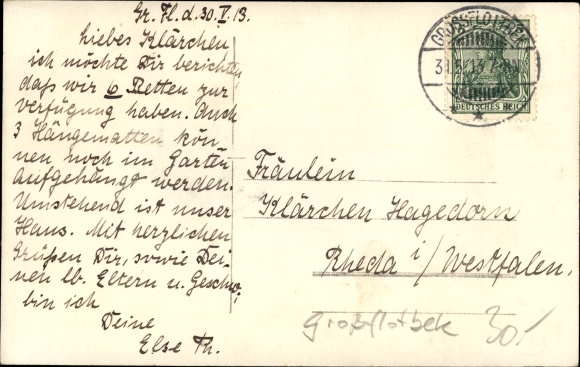 Gr. Fl. d. 30. V. 13.
Liebes Klärchen
ich möchte Dir berichten
daß wir 6 Betten zur
verfügung haben. Auch
3 Hängematten kön
nen noch im Garten
aufgehängt werden.
Umstehend ist unser
Haus. Mit herzlichen
Grüßen Dir, sowie Dei
nen lb. Eltern u. Geschw.
bin ich
Deine
Else Th.
GROSS FLOTTBEK
DEUTSCHES REICH
Fräulein
Klärchen Hagedorn
Rheda i/Westfalen.
Großflotbek 30,-